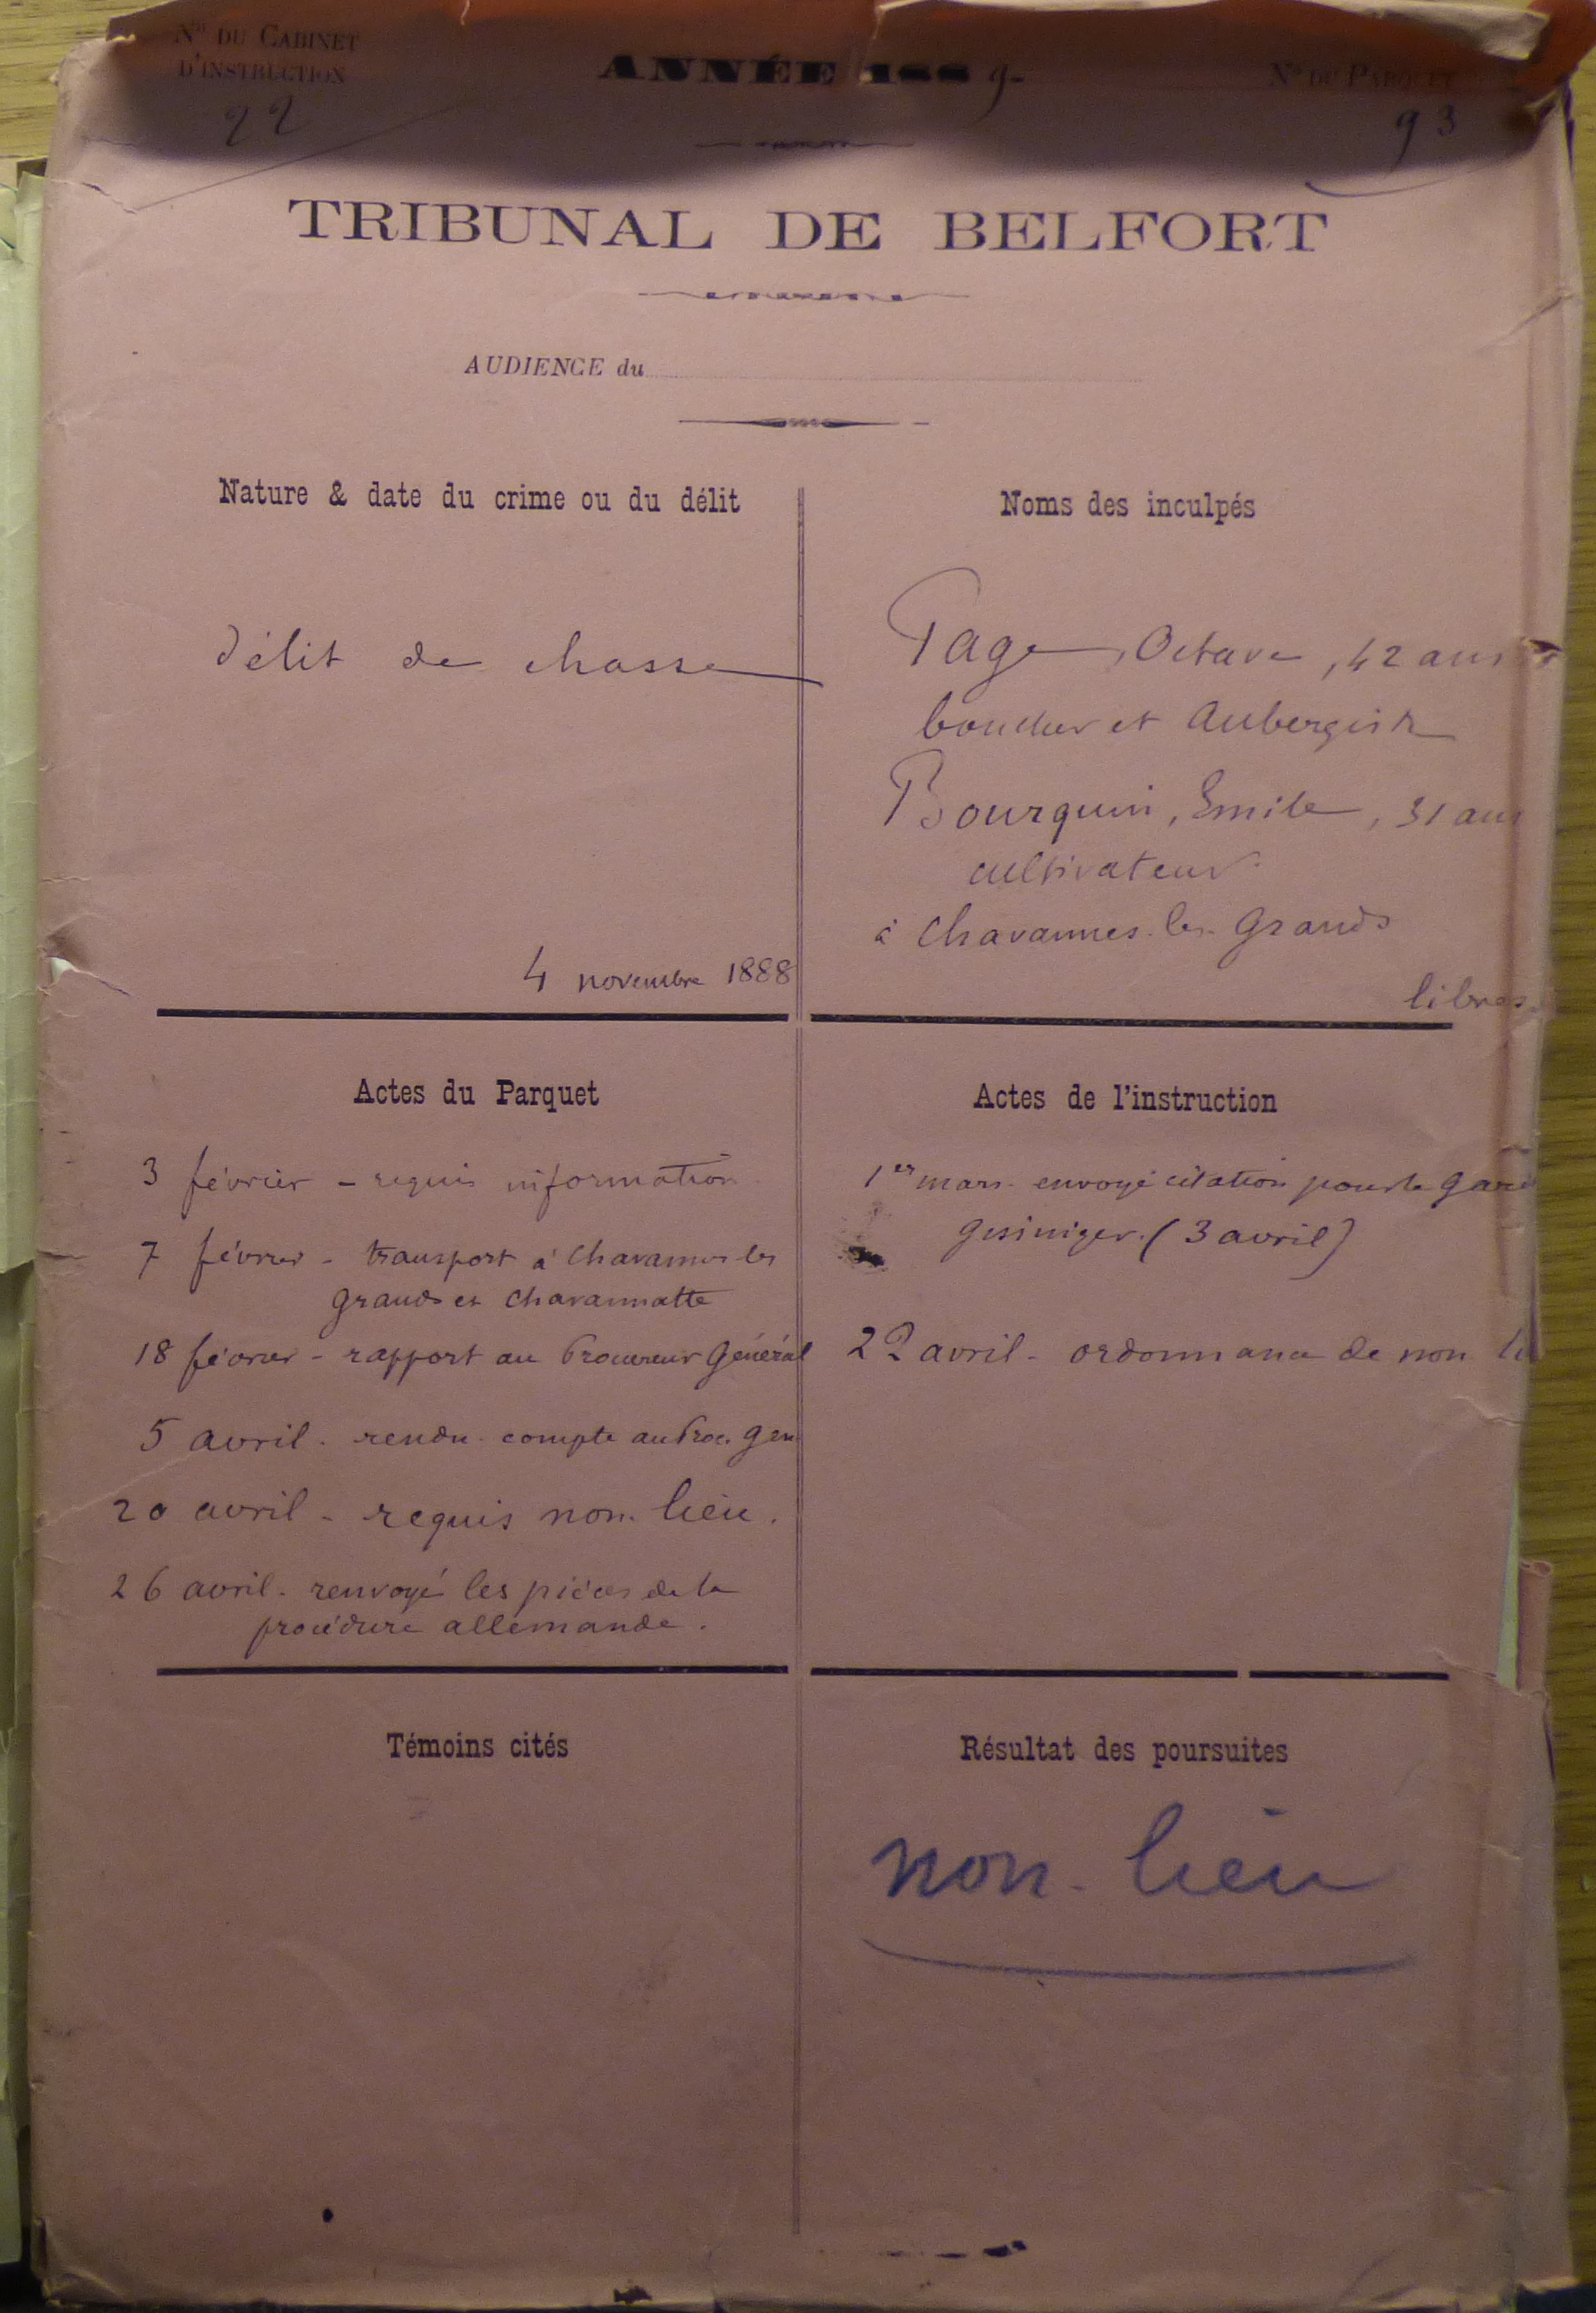 N° DU CABINET
D'INSTRUCTION
22
ANNÉE 1889
N° DU PARQUET
93
TRIBUNAL DE BELFORT
AUDIENCE du
Nature & date du crime ou du délit
délit de chasse
4 novembre 1888
Noms des inculpés
Page, Octave, 42 ans
boucher et Aubergiste
Bourquin, Emile, 31 ans
cultivateur
à Chavannes-les-Grands
libres
Actes du Parquet
3 février - requis information
7 février - transport à Chavannes les
Grands et Chavannatte
18 février - rapport au Procureur Général
5 avril - rendu compte au Proc. Gen
20 avril - requis non-lieu.
26 avril - renvoyé les pièces de la
procédure allemande.
Actes de l'instruction
1er mars - envoyé citation pour le garde
(3 avril)
22 avril - ordonnance de non-li
Témoins cités
Résultat des poursuites
non-lieu